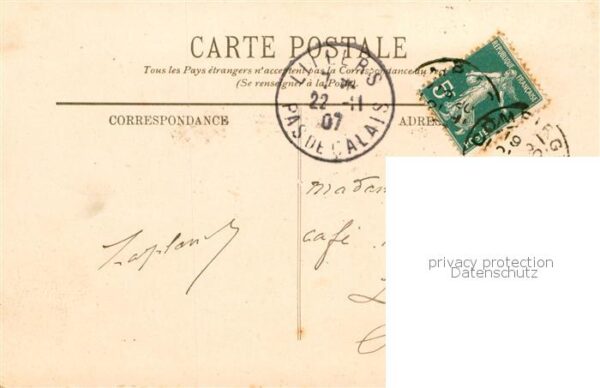 CARTE POSTALE
Tous les Pays étrangers n'acceptent pas la Correspondance au
(Se renseigner à la Poste)
LILLERS
22 -11
07
PAS DE CALAIS
RÉPUBLIQUE FRANÇAISE
5
CORRESPONDANCE
ADRES
Madam
café
privacy protection
Datenschutz